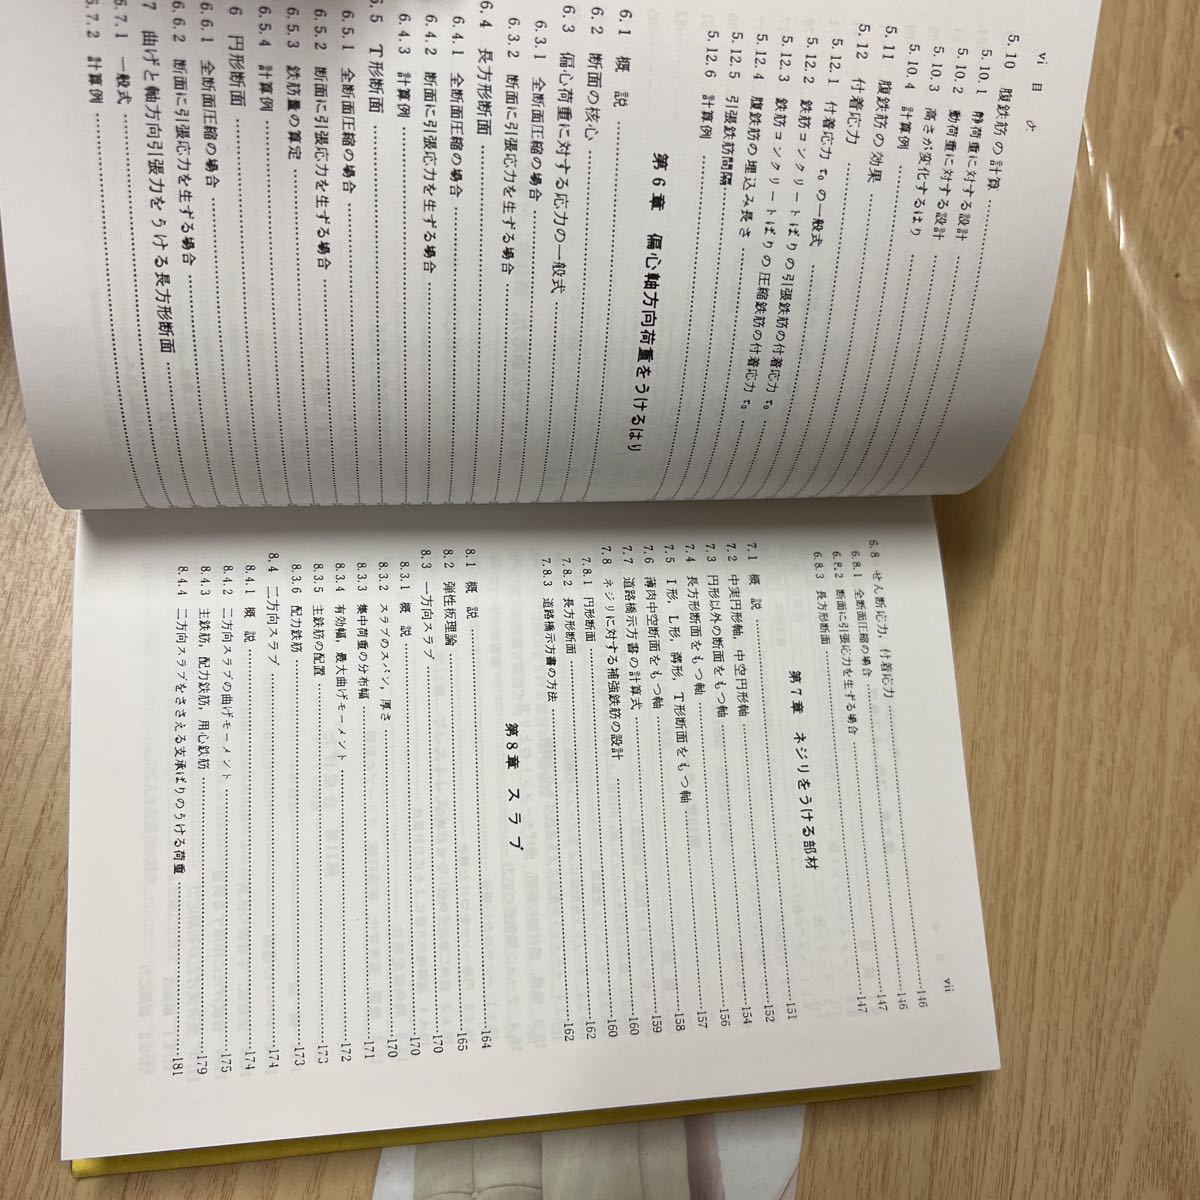 vi 目 次
5.10 腹鉄筋の計算
5.10.1 静荷重に対する設計
5.10.2 動荷重に対する設計
5.10.3 高さが変化するはり
5.10.4 計算例
5.11 腹鉄筋の効果
5.12 付着応力
5.12.1 付着応力 τ₀ の一般式
5.12.2 鉄筋コンクリートばりの引張鉄筋の付着応力 τ₀
5.12.3 鉄筋コンクリートばりの圧縮鉄筋の付着応力 τ₀
5.12.4 腹鉄筋の埋込み長さ
5.12.5 引張鉄筋間隔
5.12.6 計算例
第6章 偏心軸方向荷重をうけるはり
6.1 概 説
6.2 断面の核心
6.3 偏心荷重に対する応力の一般式
6.3.1 全断面圧縮の場合
6.3.2 断面に引張応力を生ずる場合
6.4 長方形断面
6.4.1 全断面圧縮の場合
6.4.2 断面に引張応力を生ずる場合
6.4.3 計算例
6.5 T形断面
6.5.1 全断面圧縮の場合
6.5.2 断面に引張応力を生ずる場合
6.5.3 鉄筋量の算定
6.5.4 計算例
6 円形断面
6.6.1 全断面圧縮の場合
6.6.2 断面に引張応力を生ずる場合
7 曲げと軸方向引張力をうける長方形断面
6.7.1 一般式
6.7.2 計算例
vii
6.8 せん断応力，付着応力 146
6.8.1 全断面圧縮の場合 146
6.8.2 断面に引張応力を生ずる場合 147
6.8.3 長方形断面 147
第7章 ネジリをうける部材
7.1 概 説 151
7.2 中実円形軸，中空円形軸 152
7.3 円形以外の断面をもつ軸 154
7.4 長方形断面をもつ軸 156
7.5 I形，L形，溝形，T形断面をもつ軸 157
7.6 薄肉中空断面をもつ軸 158
7.7 道路橋示方書の計算式 159
7.8 ネジリに対する補強鉄筋の設計 160
7.8.1 円形断面 160
7.8.2 長方形断面 162
7.8.3 道路橋示方書の方法 162
第8章 スラブ
8.1 概 説 164
8.2 弾性板理論 165
8.3 一方向スラブ 170
8.3.1 概 説 170
8.3.2 スラブのスパン，厚さ 170
8.3.3 集中荷重の分布幅 171
8.3.4 有効幅，最大曲げモーメント 172
8.3.5 主鉄筋の配置 173
8.3.6 配力鉄筋 173
8.4 二方向スラブ 174
8.4.1 概 説 174
8.4.2 二方向スラブの曲げモーメント 175
8.4.3 主鉄筋，配力鉄筋，用心鉄筋 179
8.4.4 二方向スラブをささえる支承ばりのうける荷重 181